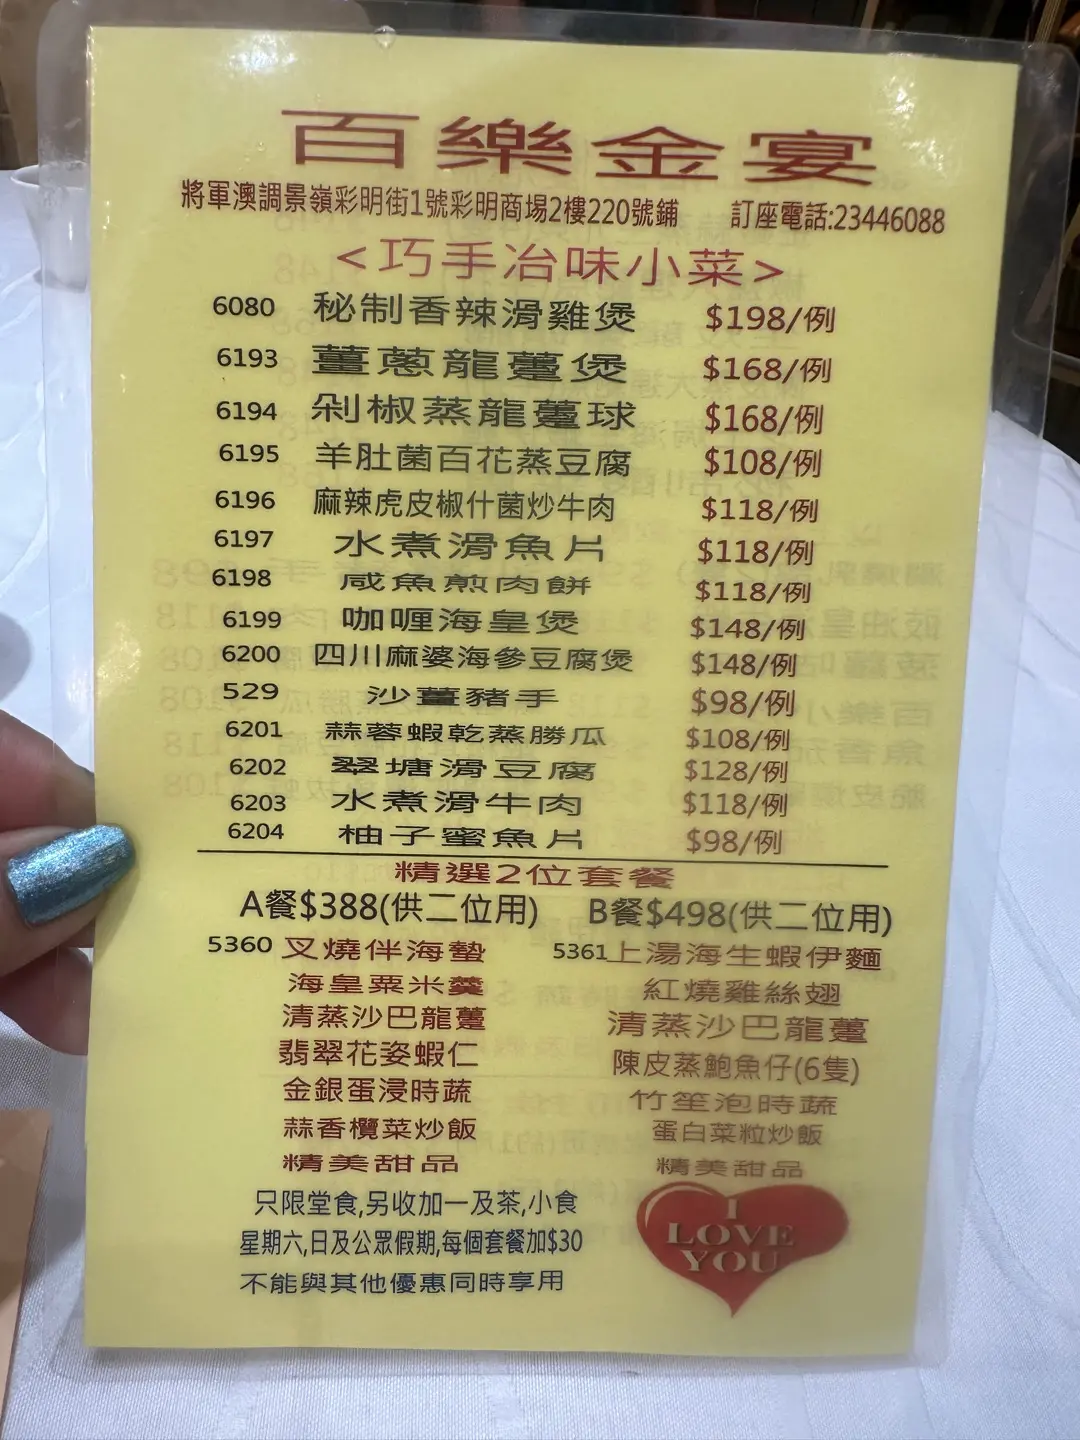 百樂金宴
將軍澳調景嶺彩明街1號彩明商場2樓220號鋪 訂座電話:23446088
<巧手冶味小菜>
6080 秘制香辣滑雞煲 $198/例
6193 薑蔥龍躉煲 $168/例
6194 剁椒蒸龍躉球 $168/例
6195 羊肚菌百花蒸豆腐 $108/例
6196 麻辣虎皮椒什菌炒牛肉 $118/例
6197 水煮滑魚片 $118/例
6198 咸魚煎肉餅 $118/例
6199 咖喱海皇煲 $148/例
6200 四川麻婆海參豆腐煲 $148/例
529 沙薑豬手 $98/例
6201 蒜蓉蝦乾蒸勝瓜 $108/例
6202 翠塘滑豆腐 $128/例
6203 水煮滑牛肉 $118/例
6204 柚子蜜魚片 $98/例
精選2位套餐
A餐$388(供二位用) B餐$498(供二位用)
5360 叉燒伴海蟄 5361上湯海生蝦伊麵
海皇粟米羹 紅燒雞絲翅
清蒸沙巴龍躉 清蒸沙巴龍躉
翡翠花姿蝦仁 陳皮蒸鮑魚仔(6隻)
金銀蛋浸時蔬 竹笙泡時蔬
蒜香欖菜炒飯 蛋白菜粒炒飯
精美甜品 精美甜品
只限堂食,另收加一及茶,小食
星期六,日及公眾假期,每個套餐加$30
不能與其他優惠同時享用
I
LOVE
YOU